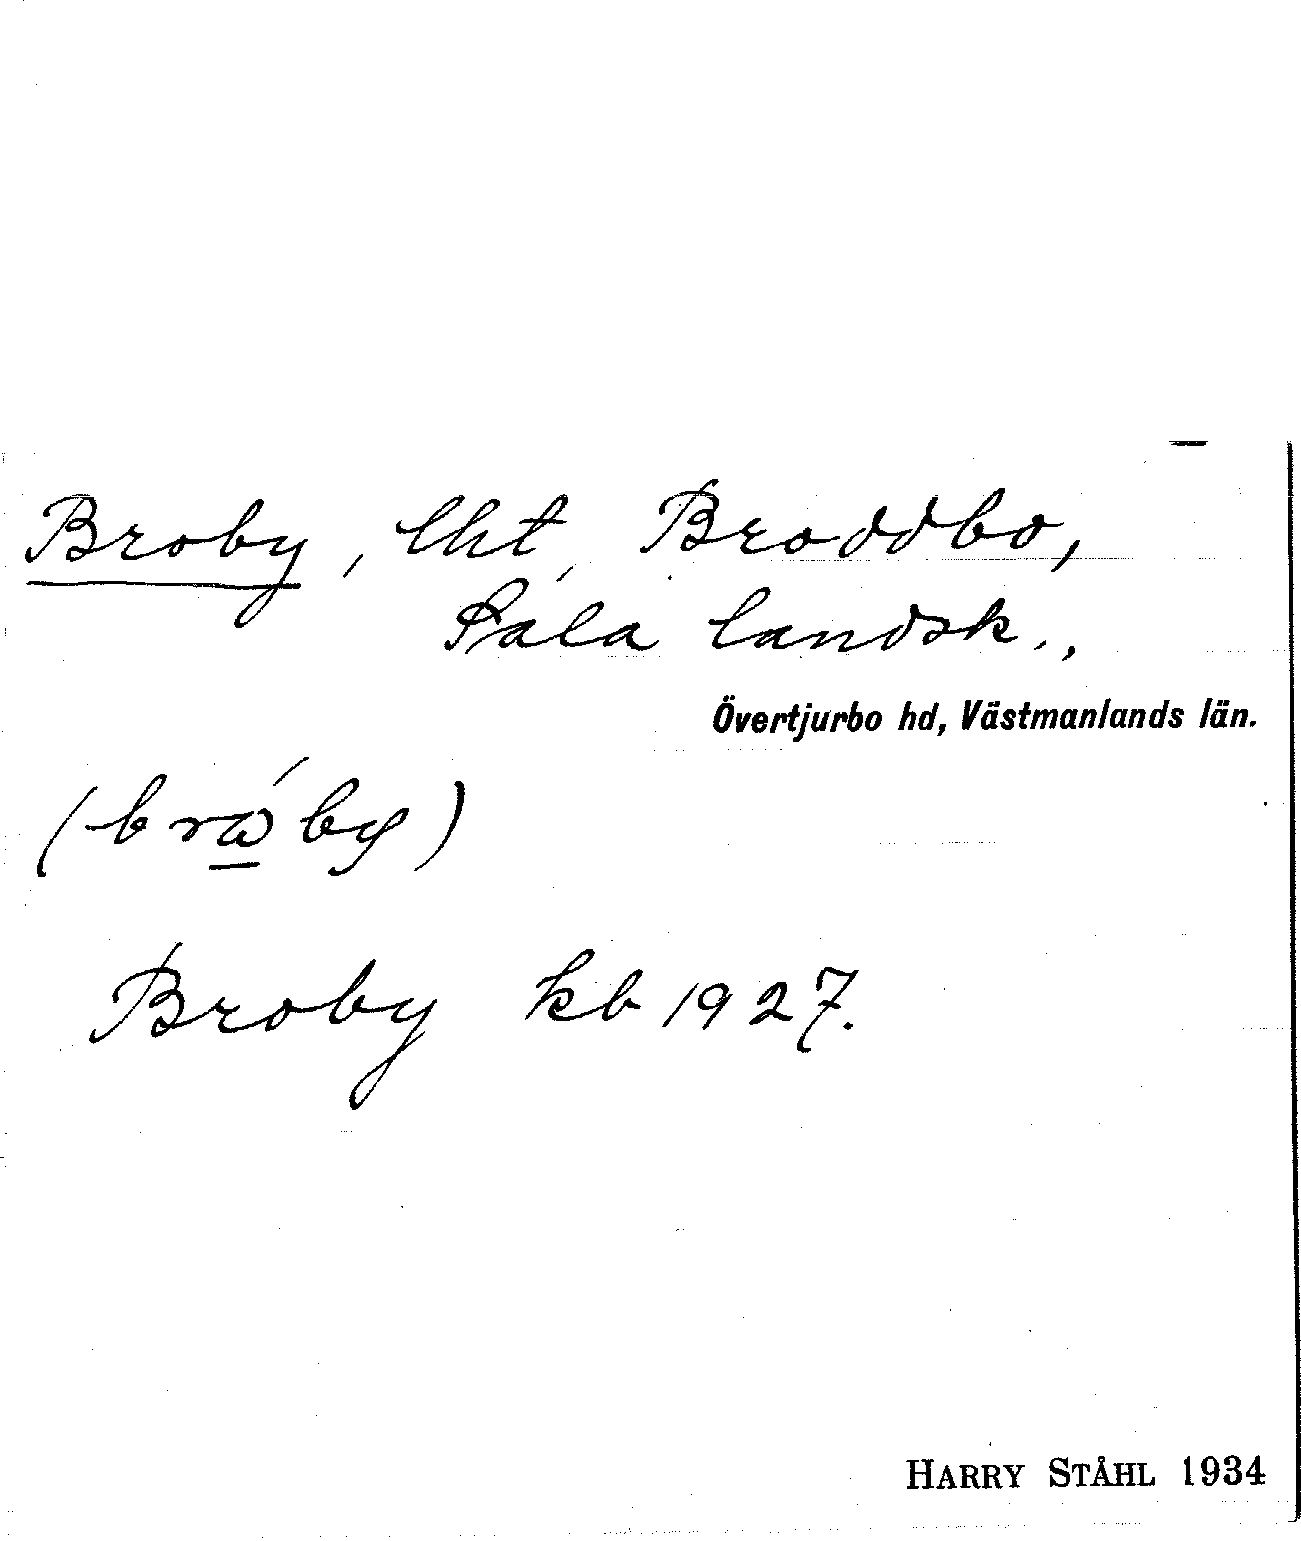 Broby, lht, Broddbo,
Sala landsk.,
Övertjurbo hd, Västmanlands län.
(brώby)
Broby kb 1927.
HARRY STÅHL 1934